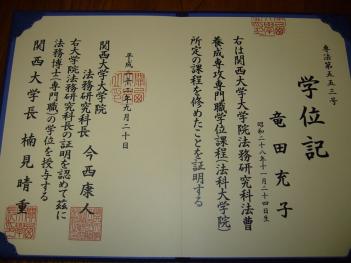 専法第五五三号
学位記
竜田充子
昭和二十八年十一月二十四日生
右は関西大学大学院法務研究科法曹
養成専攻専門職学位課程(法科大学院)
所定の課程を修めたことを証明する
平成二十二年九月二十日
関西大学大学院
法務研究科長 今西康人
右大学院法務研究科長の証明を認めて茲に
法務博士(専門職)の学位を授与する
関西大学長 楠見晴重